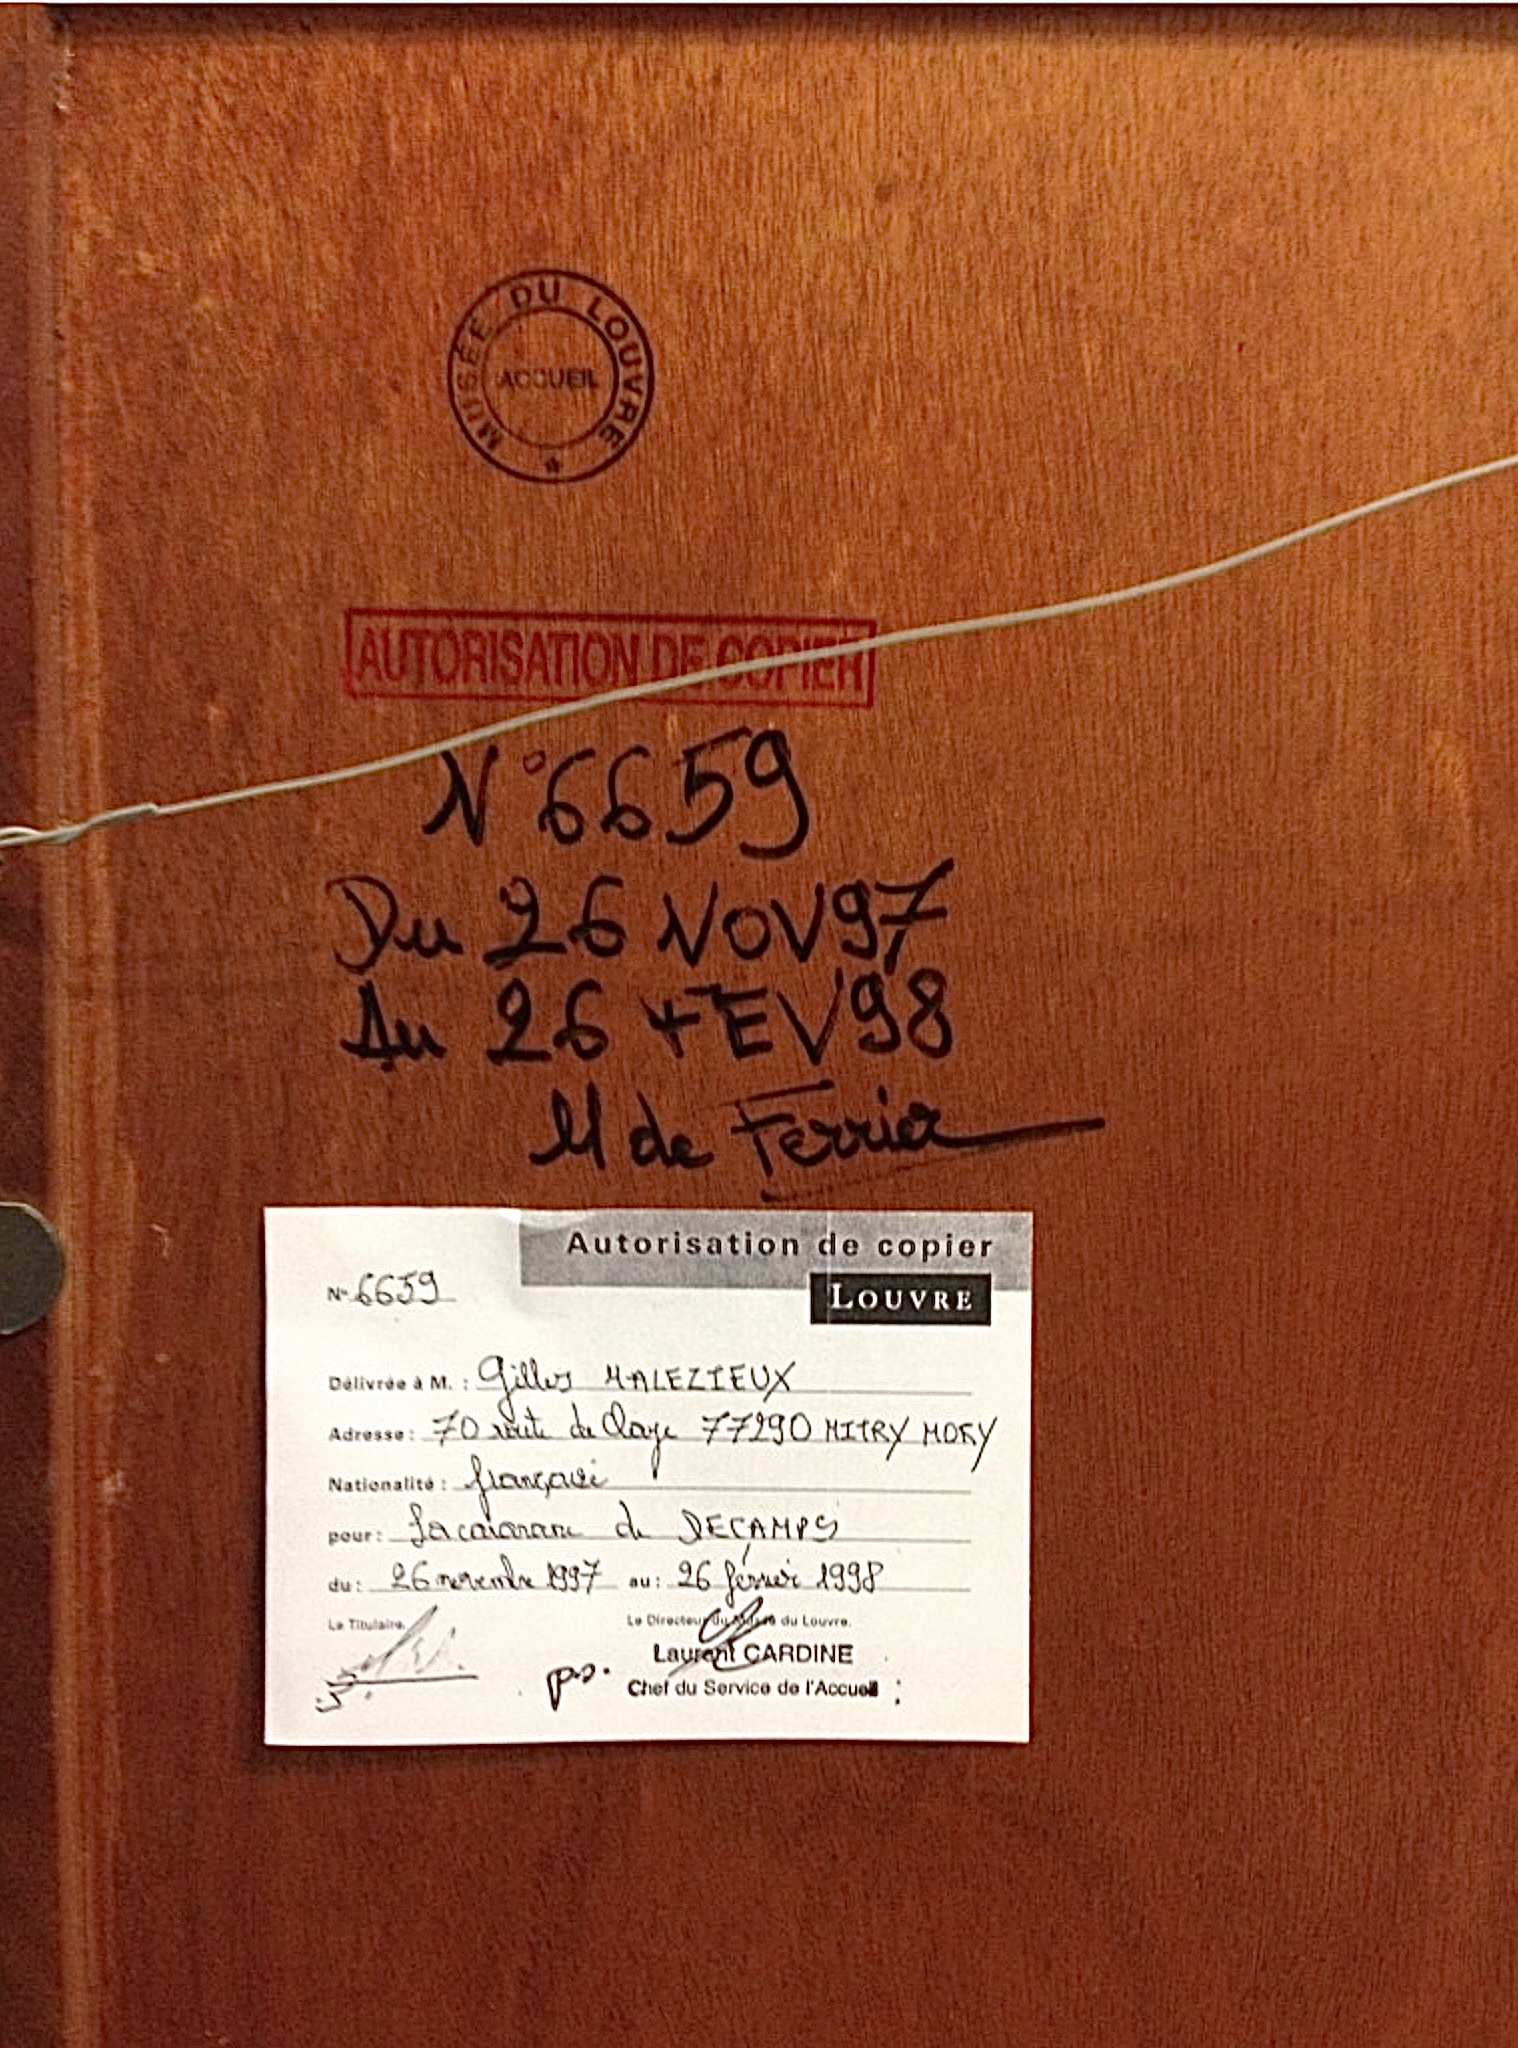 MUSÉE DU LOUVRE
ACCUEIL
AUTORISATION DE COPIER
N° 6659
Du 26 NOV 97
Au 26 FEV 98
M de Ferrier
Autorisation de copier
LOUVRE
N° 6659
Délivrée à M. : Gilles MALEZIEUX
Adresse : 70 route de Claye 77290 MITRY MORY
Nationalité : française
pour : La caravane de DECAMPS
du : 26 novembre 1997 au : 26 février 1998
Le Titulaire, Le Directeur du Musée du Louvre,
Laurent CARDINE
p.o. Chef du Service de l'Accueil